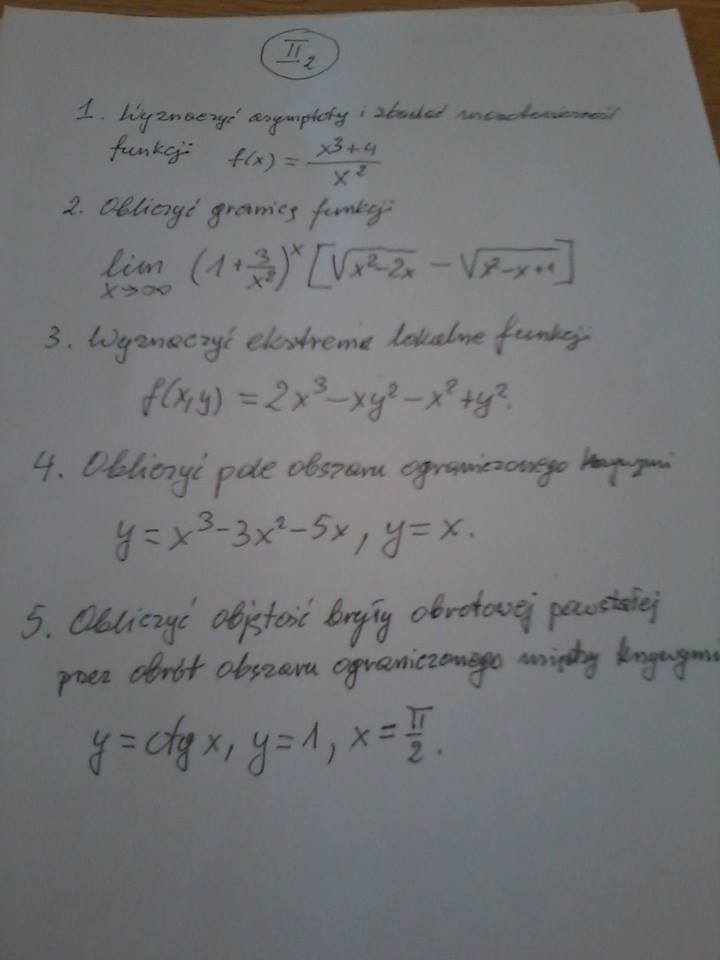 II₂
1. Wyznaczyć asymptoty i zbadać monotoniczność
funkcji f(x) = \frac{x^3+4}{x^2}
2. Obliczyć granicę funkcji
\lim_{x→∞} (1+\frac{3}{x^2})^x [\sqrt{x^2-2x} - \sqrt{x^2-x+1}]
3. Wyznaczyć ekstrema lokalne funkcji
f(x,y) = 2x³-xy²-x²+y².
4. Obliczyć pole obszaru ograniczonego krzywymi
y = x³-3x²-5x, y = x.
5. Obliczyć objętość bryły obrotowej powstałej
przez obrót obszaru ograniczonego między krzywymi
y = ctg x, y = 1, x = \frac{π}{2}.